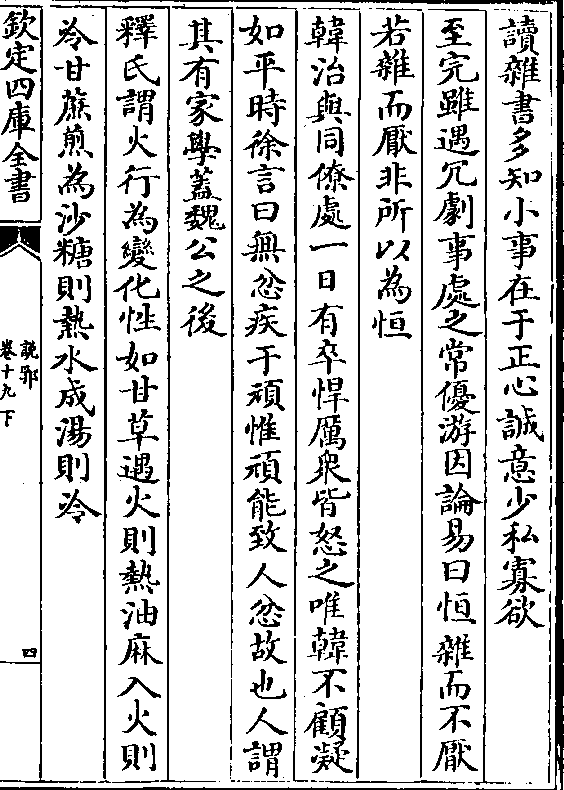 讀雜書多知小事在于正心誠意少私寡欲
至完雖遇冗劇事處之常優游因論易曰恒雜而不厭
若雜而厭非所以為恒
韓治與同僚處一日有卒悍厲衆皆怒之唯韓不顧凝
如平時徐言曰無忿疾于頑惟頑能致人忿故也人謂
其有家學蓋魏公之後
釋氏謂火行為變化性如甘草遇火則熱油麻入火則
冷甘蔗煎為沙糖則熱水成湯則冷
欽定四庫全書
説郛
卷十九下
四